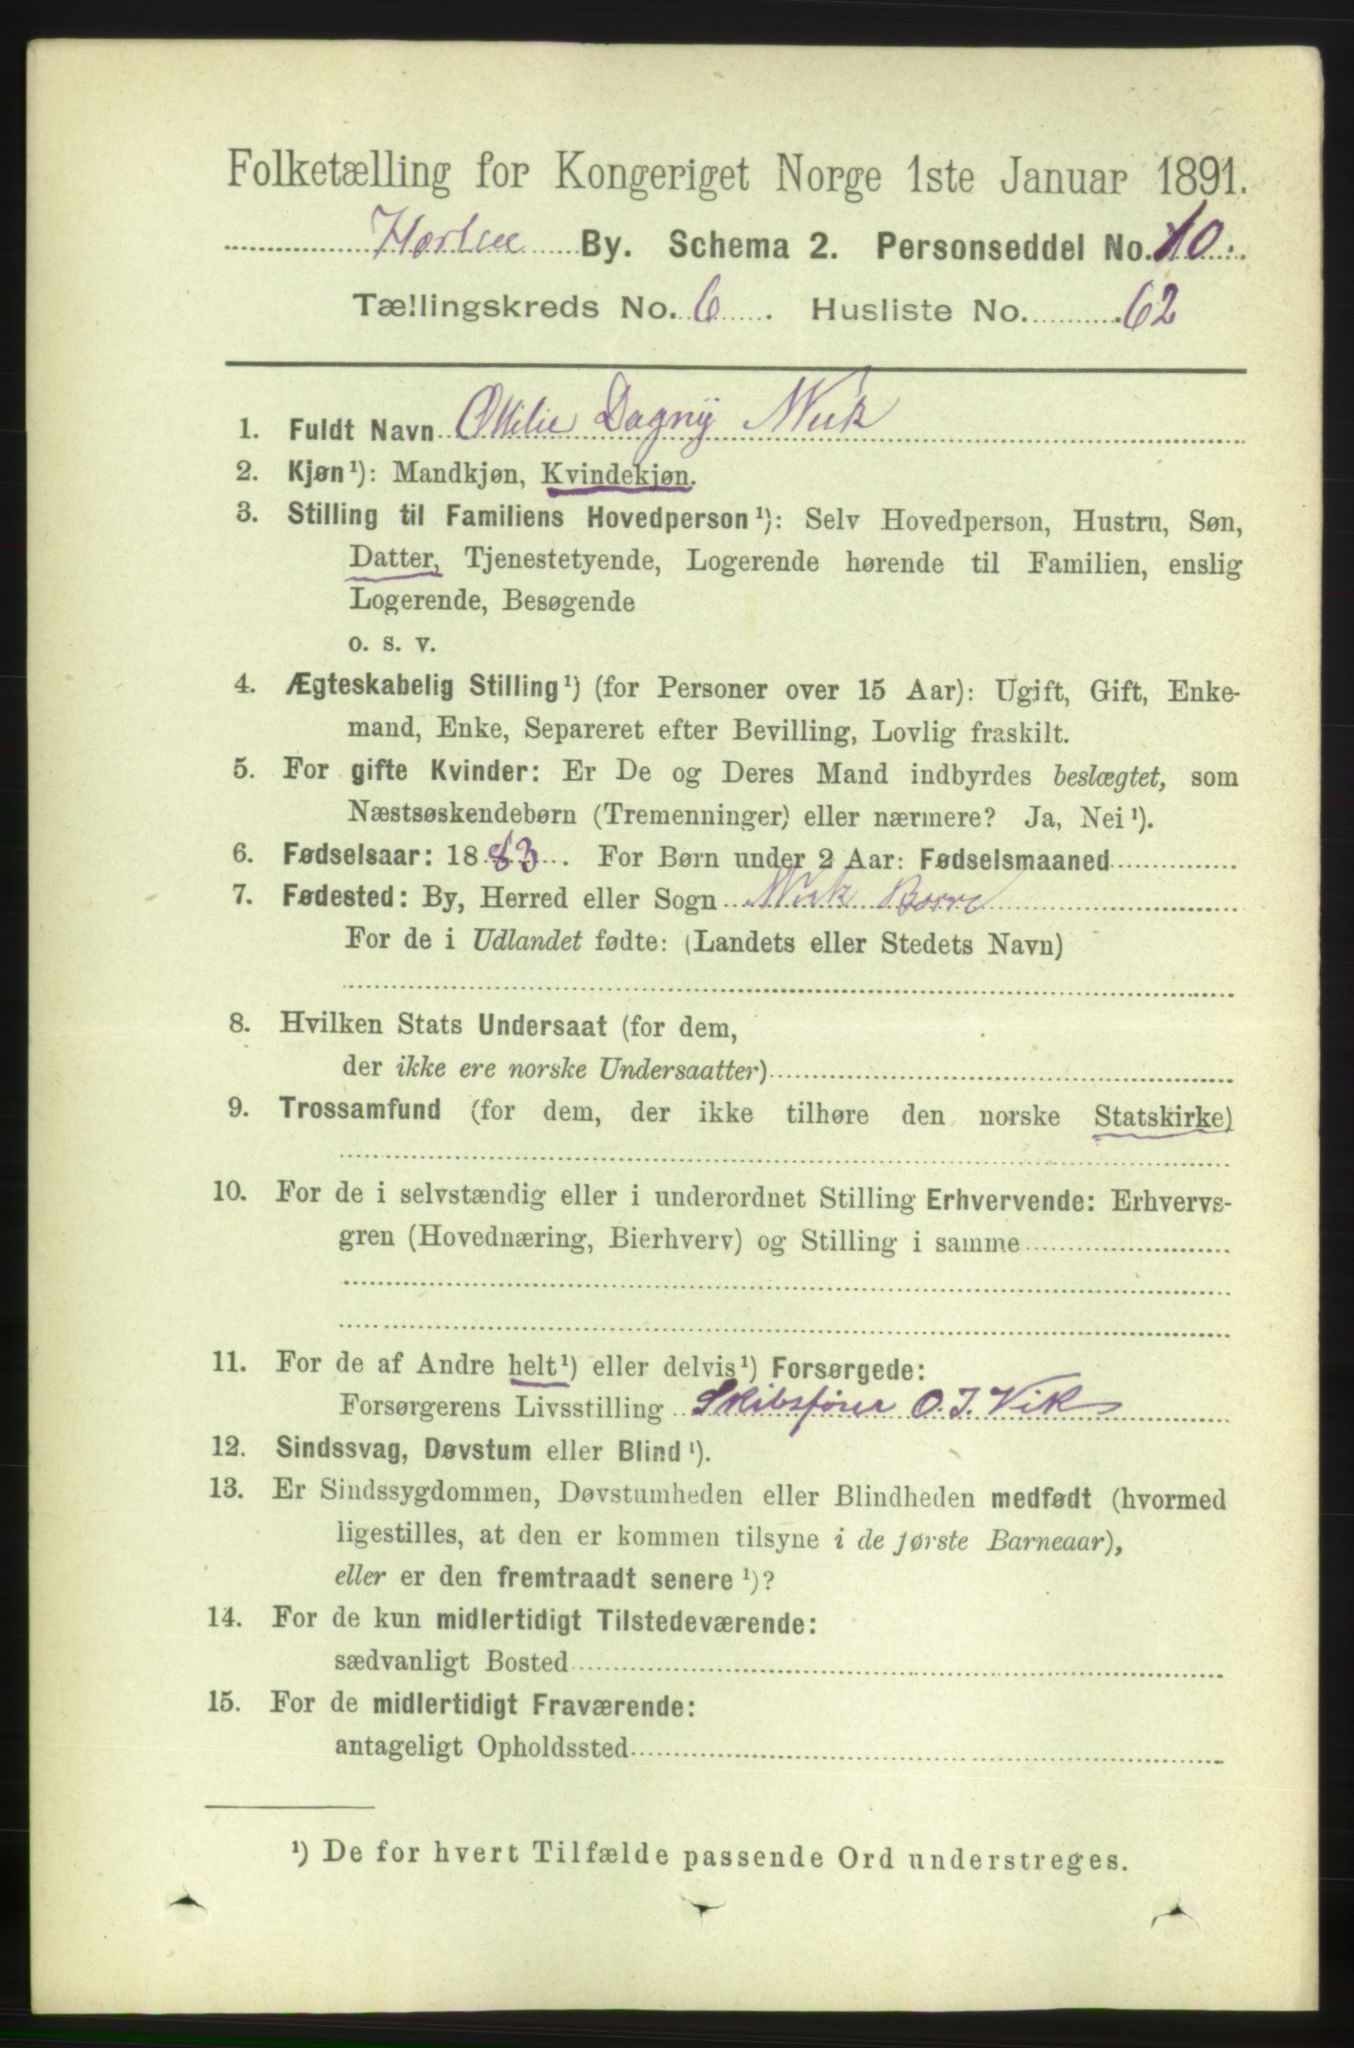 Folketælling for Kongeriget Norge 1ste Januar 1891.
Horten By. Schema 2. Personseddel No. 10.
Tællingskreds No. 6. Husliste No. 62
1. Fuldt Navn Ottilie Dagny Wiik
2. Kjøn¹): Mandkjøn, Kvindekjøn.
3. Stilling til Familiens Hovedperson¹): Selv Hovedperson, Hustru, Søn,
Datter, Tjenestetyende, Logerende hørende til Familien, enslig
Logerende, Besøgende
o. s. v.
4. Ægteskabelig Stilling¹) (for Personer over 15 Aar): Ugift, Gift, Enke-
mand, Enke, Separeret efter Bevilling, Lovlig fraskilt.
5. For gifte Kvinder: Er De og Deres Mand indbyrdes beslægtet, som
Næstsøskendebørn (Tremenninger) eller nærmere? Ja, Nei¹).
6. Fødselsaar: 1883. For Børn under 2 Aar: Fødselsmaaned
7. Fødested: By, Herred eller Sogn Borre
For de i Udlandet fødte: (Landets eller Stedets Navn)
8. Hvilken Stats Undersaat (for dem,
der ikke ere norske Undersaatter)
9. Trossamfund (for dem, der ikke tilhøre den norske Statskirke)
10. For de i selvstændig eller i underordnet Stilling Erhvervende: Erhvervs-
gren (Hovednæring, Bierhverv) og Stilling i samme
11. For de af Andre helt¹) eller delvis¹) Forsørgede:
Forsørgerens Livsstilling Skibsfører O. J. Vik
12. Sindssvag, Døvstum eller Blind¹).
13. Er Sindssygdommen, Døvstumheden eller Blindheden medfødt (hvormed
ligestilles, at den er kommen tilsyne i de første Barneaar),
eller er den fremtraadt senere¹)?
14. For de kun midlertidigt Tilstedeværende:
sædvanligt Bosted
15. For de midlertidigt Fraværende:
antageligt Opholdssted
¹) De for hvert Tilfælde passende Ord understreges.